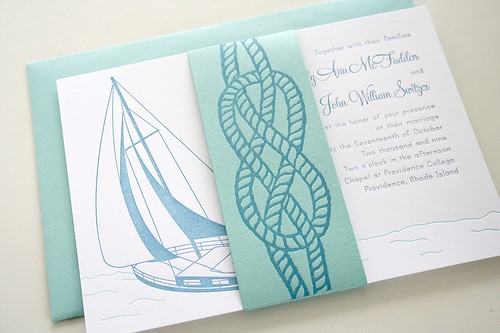 Together with their families
Ann McFadden
and
John William Switzer
the honor of your presence
at their marriage
the Seventeenth of October
Two thousand and nine
Two o'clock in the afternoon
Chapel at Providence College
Providence, Rhode Island